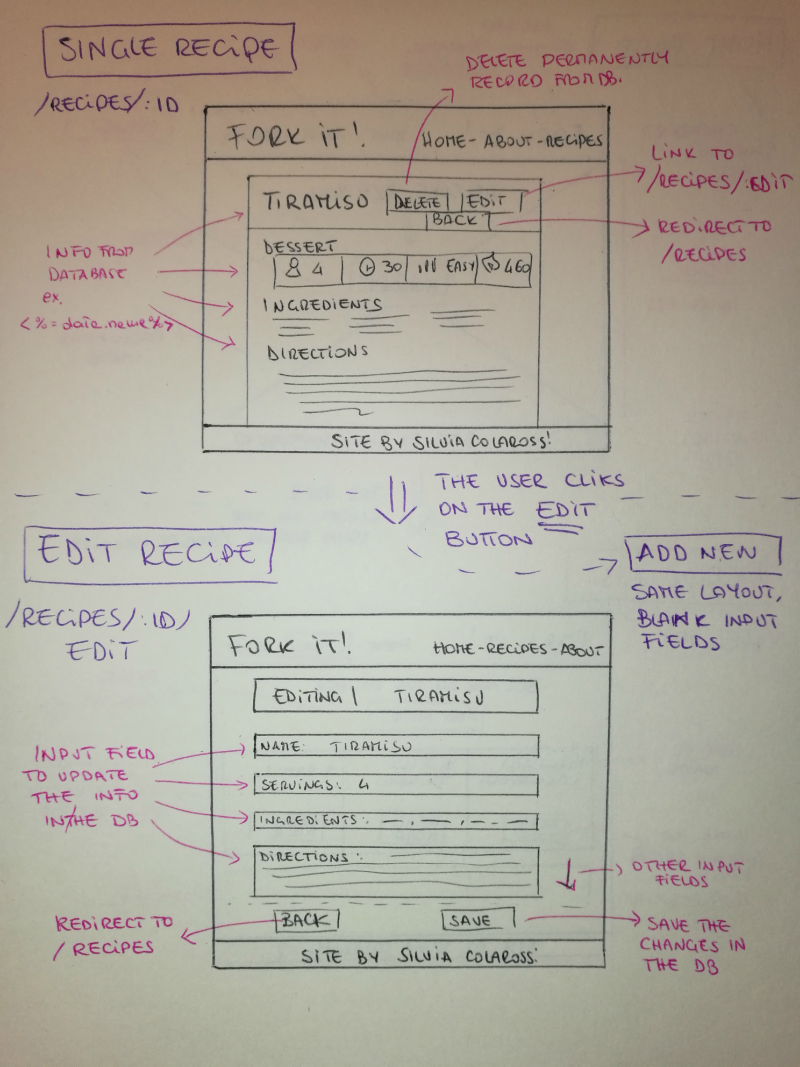 SINGLE RECIPE
/RECIPES/:ID
DELETE PERMANENTLY
RECORD FROM DB.
FORK IT!
HOME - ABOUT - RECIPES
LINK TO
/RECIPES/:EDIT
TIRAMISO DELETE EDIT
BACK
REDIRECT TO
/RECIPES
INFO FROM
DATABASE
ex.
<%= data.name %>
DESSERT
4 30 EASY 460
INGREDIENTS
DIRECTIONS
SITE BY SILVIA COLAROSSI
THE USER CLIKS
ON THE EDIT
BUTTON
EDIT RECIPE
/RECIPES/:ID/
EDIT
ADD NEW
SAME LAYOUT,
BLANK INPUT
FIELDS
FORK IT!
HOME - RECIPES - ABOUT
EDITING | TIRAMISU
INPUT FIELD
TO UPDATE
THE INFO
IN THE DB
NAME: TIRAMISU
SERVINGS: 4
INGREDIENTS:
DIRECTIONS:
OTHER INPUT
FIELDS
REDIRECT TO
/RECIPES
BACK
SAVE
SAVE THE
CHANGES IN
THE DB
SITE BY SILVIA COLAROSSI